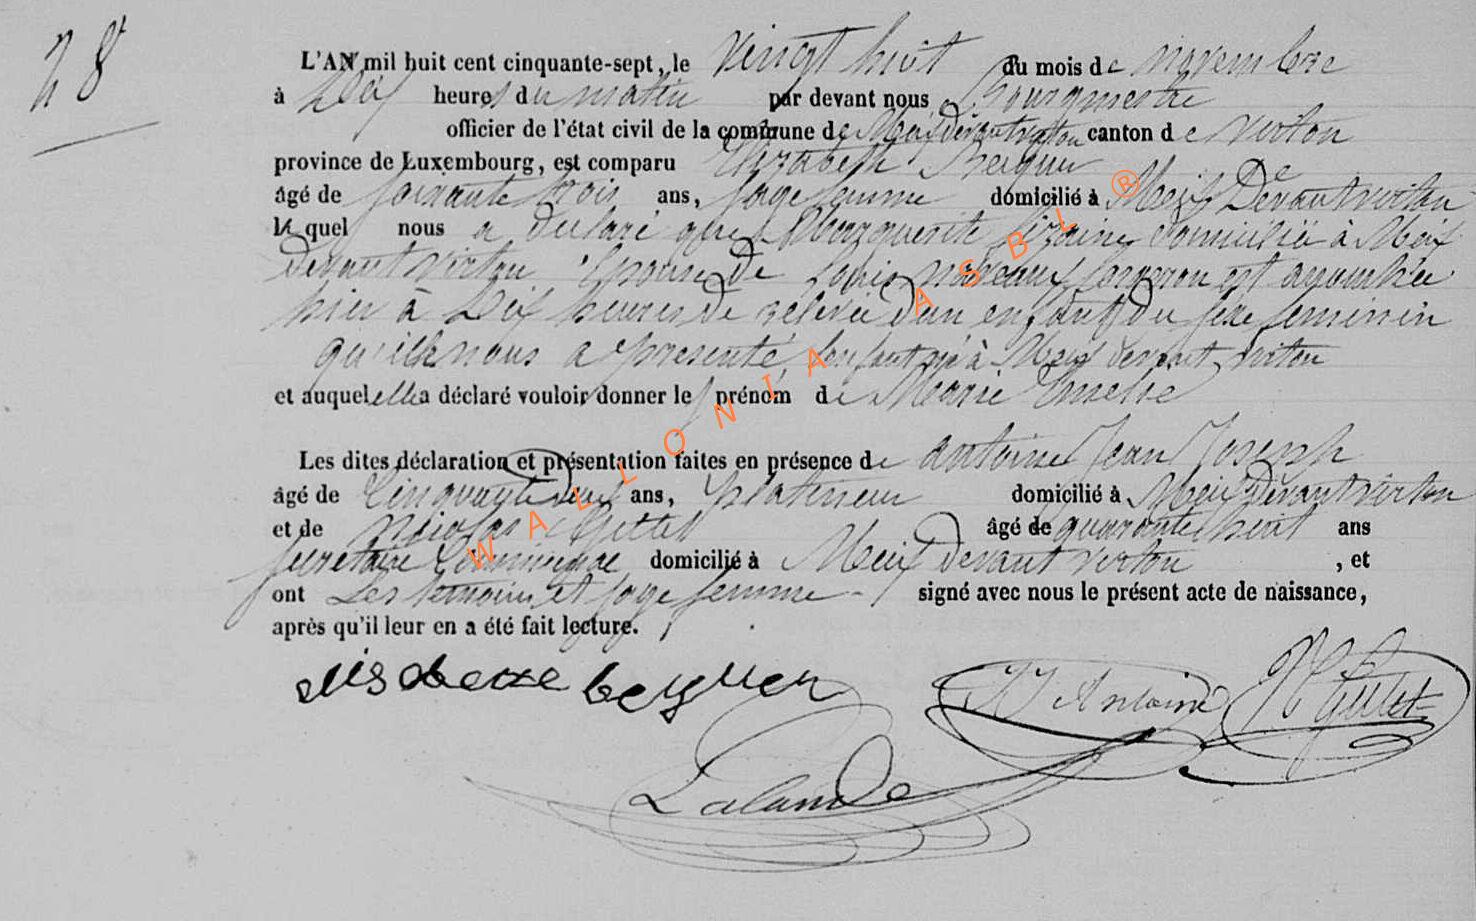 28
L'AN mil huit cent cinquante-sept, le vingt huit du mois de novembre
à Dix heures du matin par devant nous Bourgmestre
officier de l'état civil de la commune de Meix devant virton canton de virton
province de Luxembourg, est comparu Elizabeth Berguer
âgé de soixante trois ans, sage femme domicilié à Meix Devant virton
lequel nous a Declaré que Marguerite domiciliée à Meix
devant virton Epouse de Louis forgeron est accouchée
hier à Dix heures De relevée d'un enfant du sexe feminin
qu'elle nous a presenté, enfant né à Meix devant virton
et auquel elle a déclaré vouloir donner le prénom de Marie Emelie
Les dites déclaration et présentation faites en présence de antoine Jean Joseph
âgé de Cinquante Deux ans, domicilié à Meix Devant virton
et de Nicolas âgé de quarante huit ans
secretaire Communale domicilié à Meix devant virton , et
ont Les temoins et sage femme signé avec nous le présent acte de naissance,
après qu'il leur en a été fait lecture.
berguer JJ Antoine
Lalande
WALLONIA ASBL ®